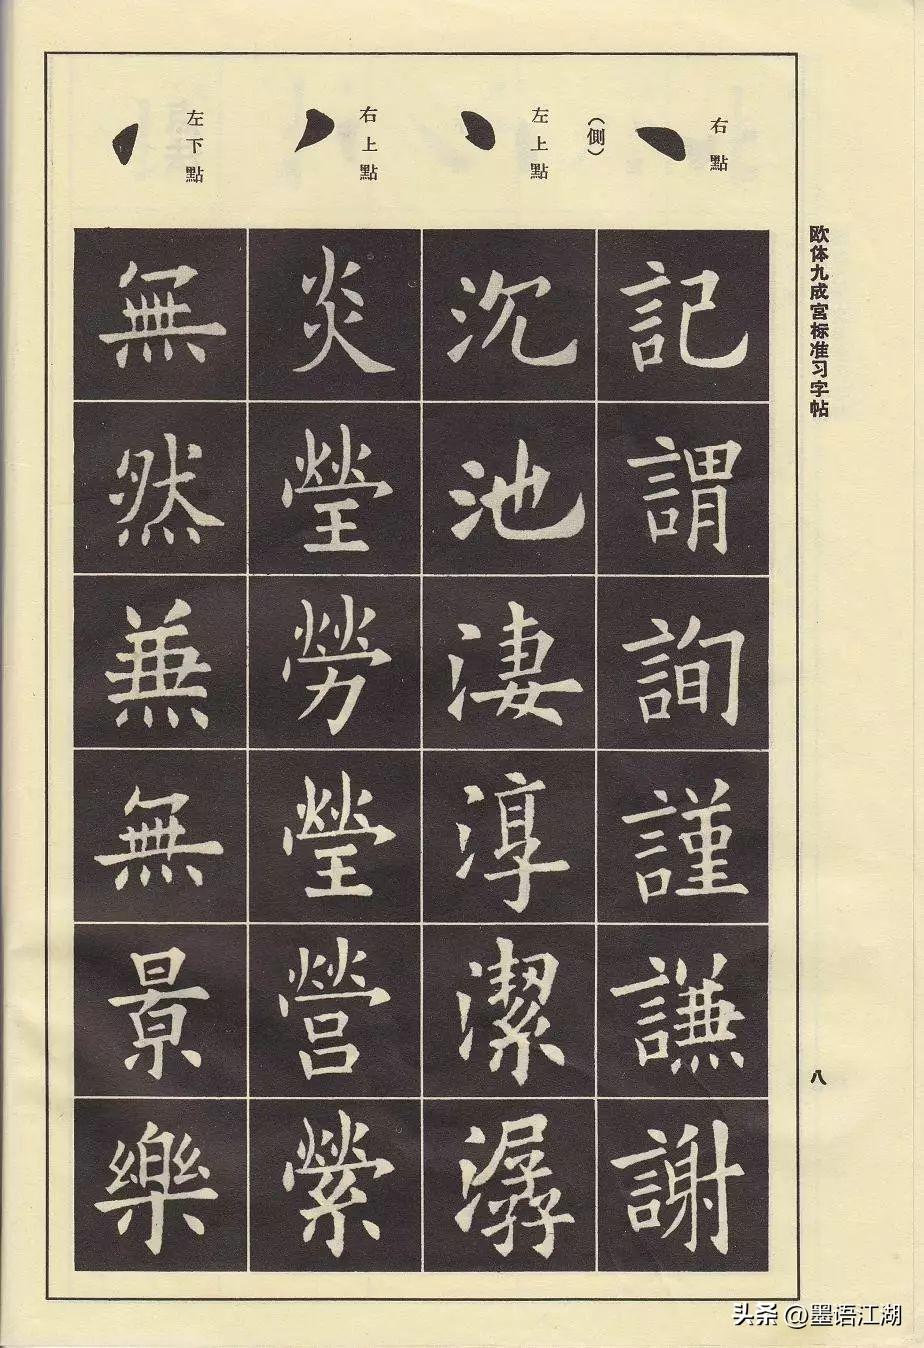 欧体九成宫标准习字帖
八
右點
(側)
左上點
右上點
左下點
記謂詢謹謙謝
沉池淒淳潔潺
炎瑩勞瑩營縈
無然兼無景樂
头条 @墨语江湖